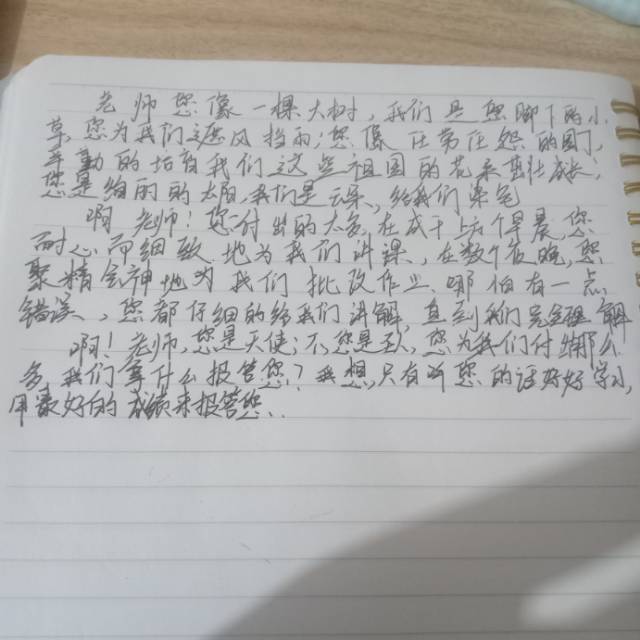 老师您像一棵大树，我们是您脚下的小
草，您为我们遮风挡雨；您像任劳任怨的园丁，
辛勤的培育我们这些祖国的花朵茁壮成长，
您是细雨的太阳，我们是云朵、给我们
啊 老师！您付出的太多，在成千上万个早晨，您
耐心而细致地为我们讲课，在数个夜晚，您
聚精会神地为我们批改作业、哪怕有一点
错误，您都仔细的给我们讲解，直到我们完全理解
啊！老师，您是天使；不，您是，您为我们付出那么
多，我们拿什么报答您？我想，只有听您的话好好学习，
用最好的成绩来报答您、